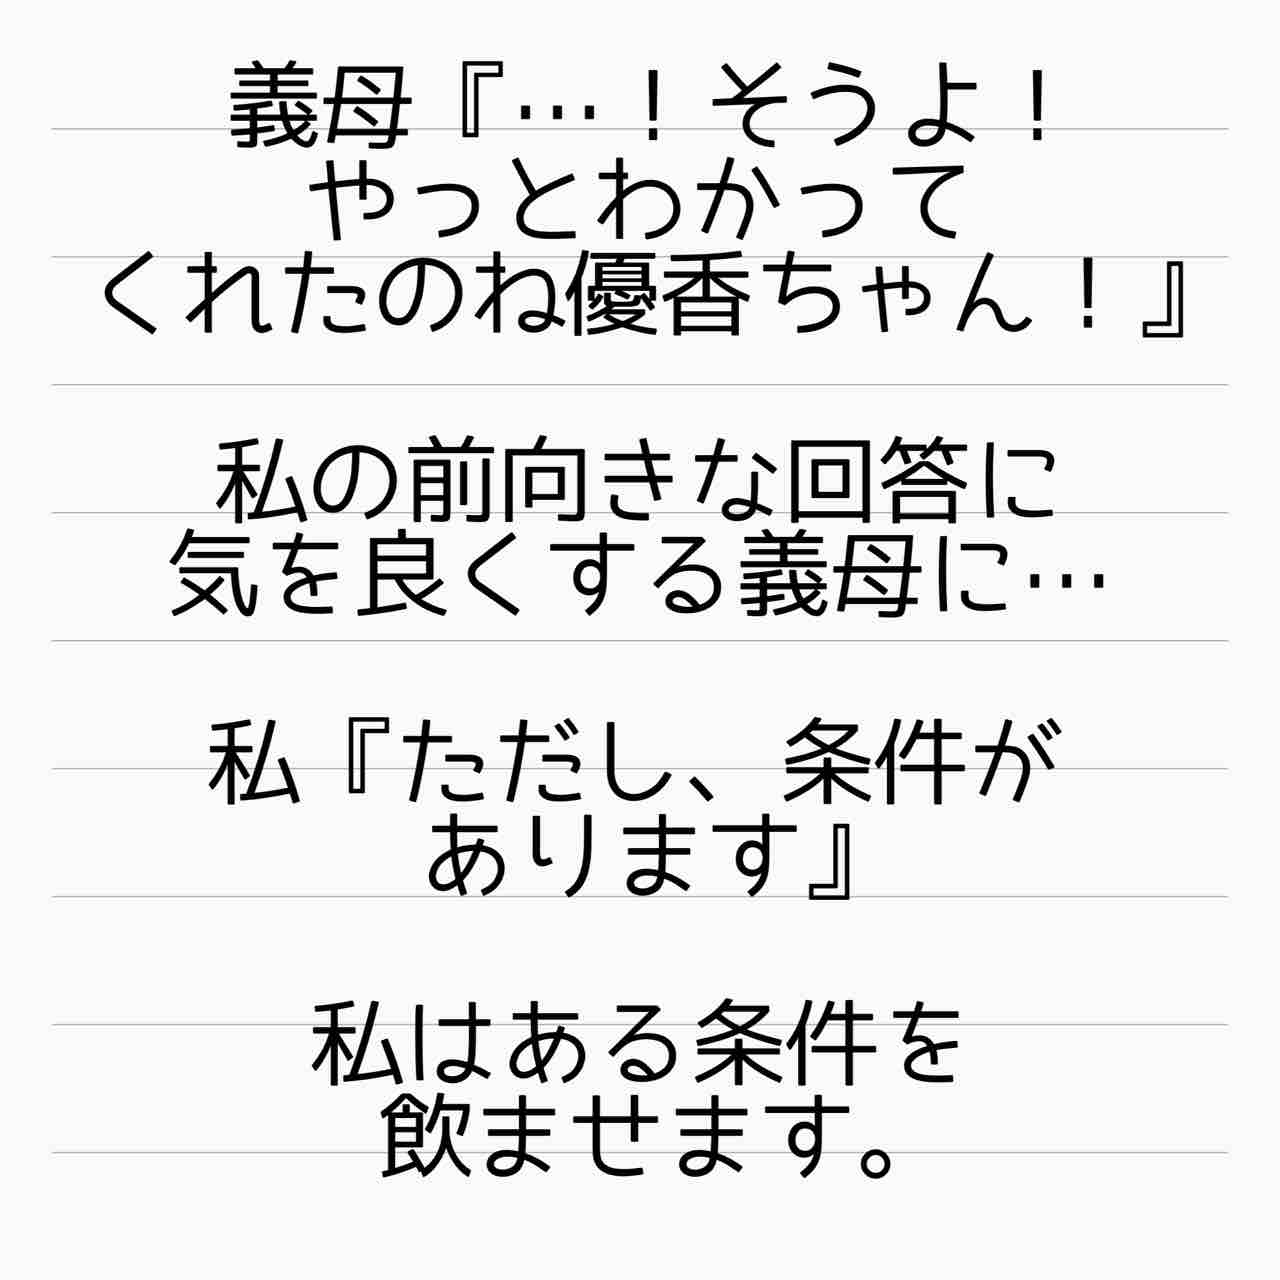 義母『…！そうよ！
やっとわかって
くれたのね優香ちゃん！』
私の前向きな回答に
気を良くする義母に…
私『ただし、条件が
あります』
私はある条件を
飲ませます。